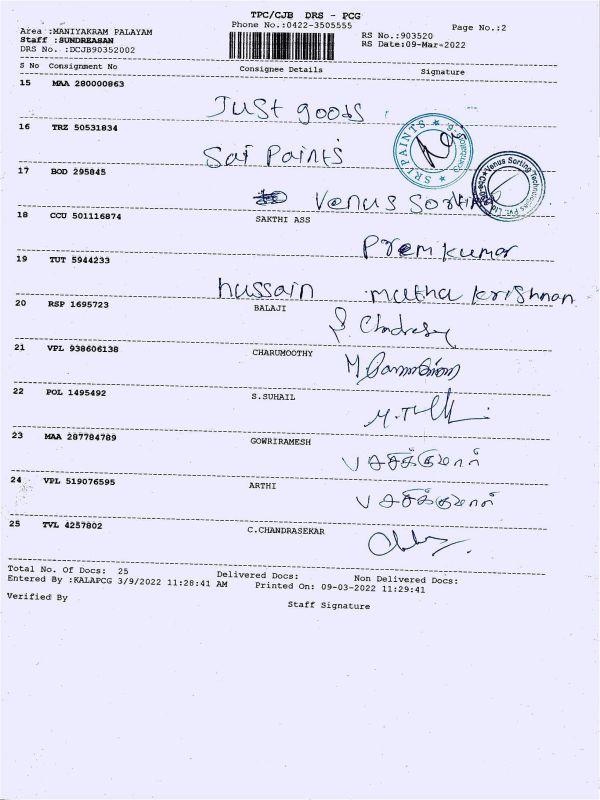 TPC/CJB DRS - PCG
Phone No.:0422-3505555
Page No.:2
Area :MANIYAKRAM PALAYAM
Staff :SUNDREASAN
DRS No. :DCJB90352002
RS No.:903520
RS Date:09-Mar-2022
S No Consignment No Consignee Details Signature
15 MAA 280000863
Just goods
16 TRZ 50531834
Sai Paints
SRI PAINTS
17 BOD 295845
Venus Sorting
Venus Sorting Technologies Pvt. Ltd.
18 CCU 501116874 SAKTHI ASS
Prem kumar
19 TUT 5944233
hussain mutha krishnan
20 RSP 1695723 BALAJI
21 VPL 938606138 CHARUMOOTHY
22 POL 1495492 S.SUHAIL
23 MAA 287784789 GOWRIRAMESH
24 VPL 519076595 ARTHI
25 TVL 4257802 C.CHANDRASEKAR
Total No. Of Docs: 25 Delivered Docs: Non Delivered Docs:
Entered By :KALAPCG 3/9/2022 11:28:41 AM Printed On: 09-03-2022 11:29:41
Verified By Staff Signature